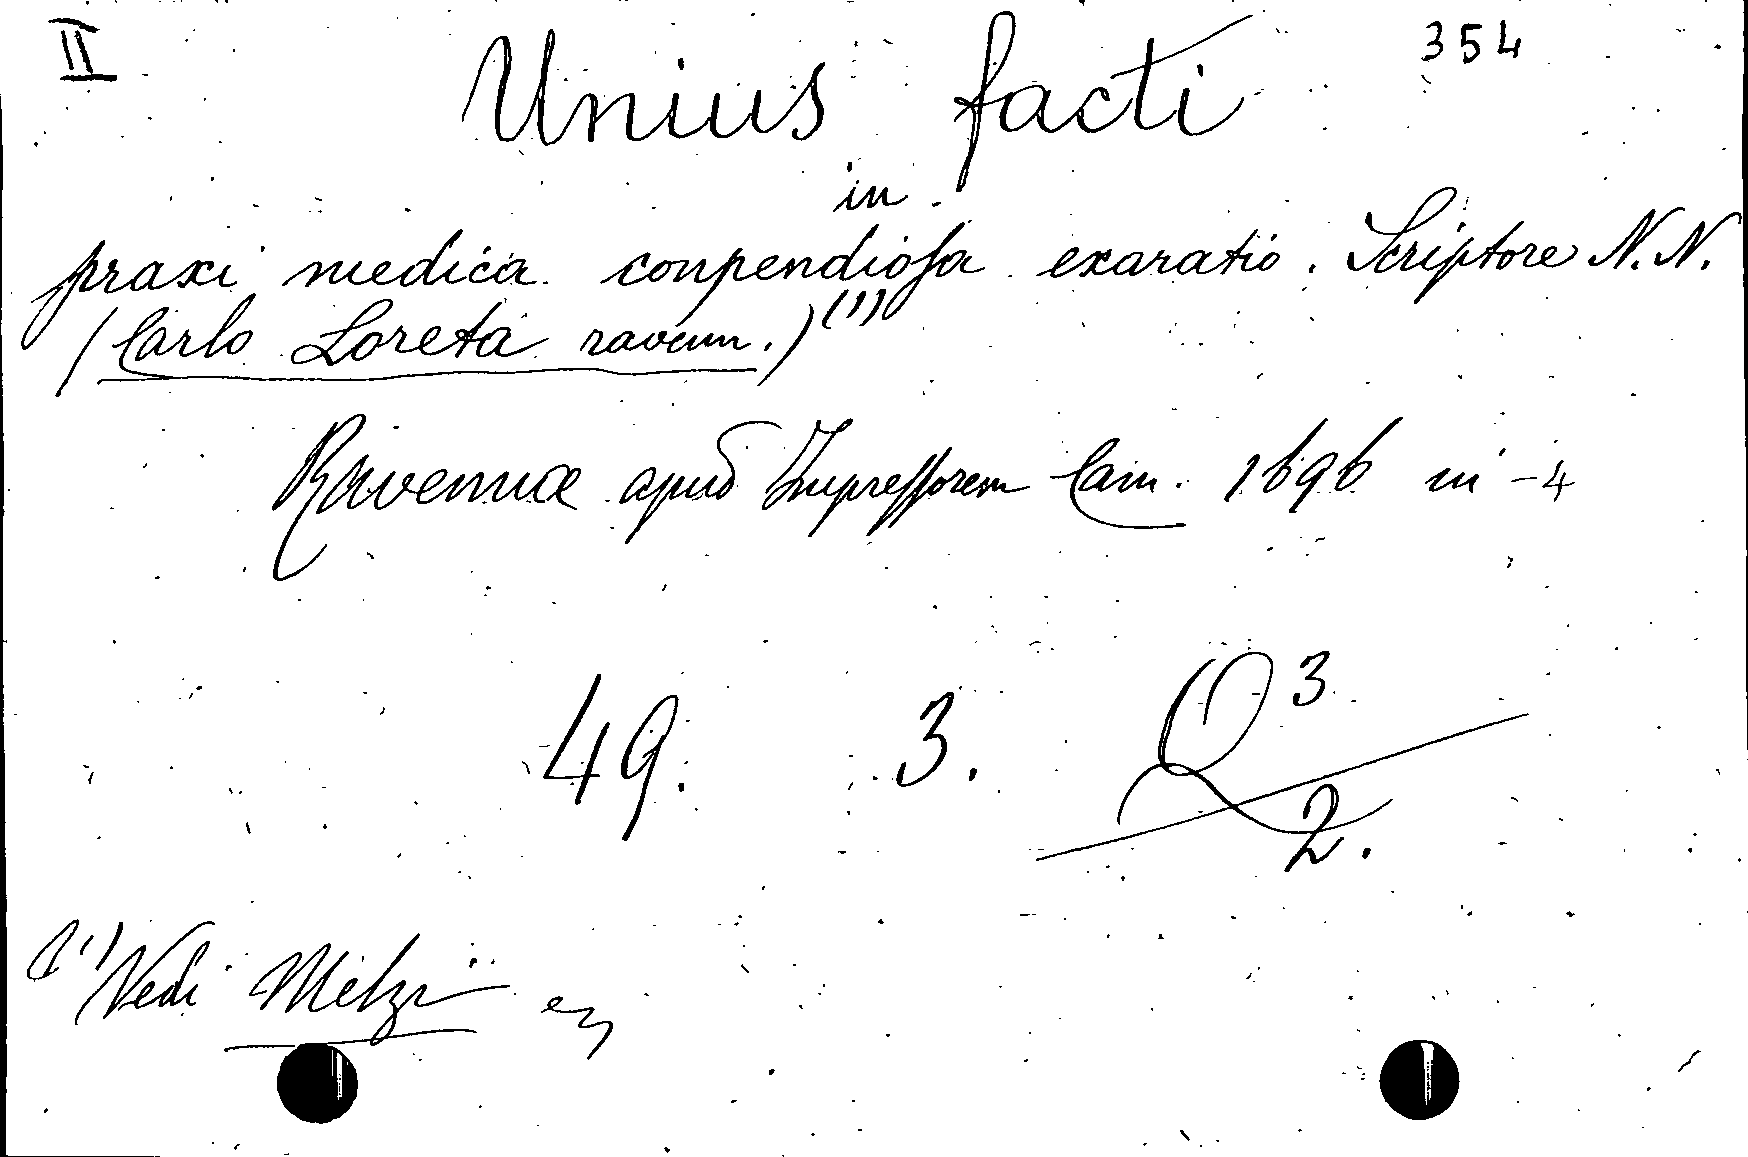 II 354
Unius facti
in
praxi medica conpendiosa exaratio. Scriptore N. N.
(Carlo Loreta ravenn.)(1)
Ravennae apud Impressorem Cam. 1696 in-4
49. 3. Q 3
2.
(1) Vedi Melzi